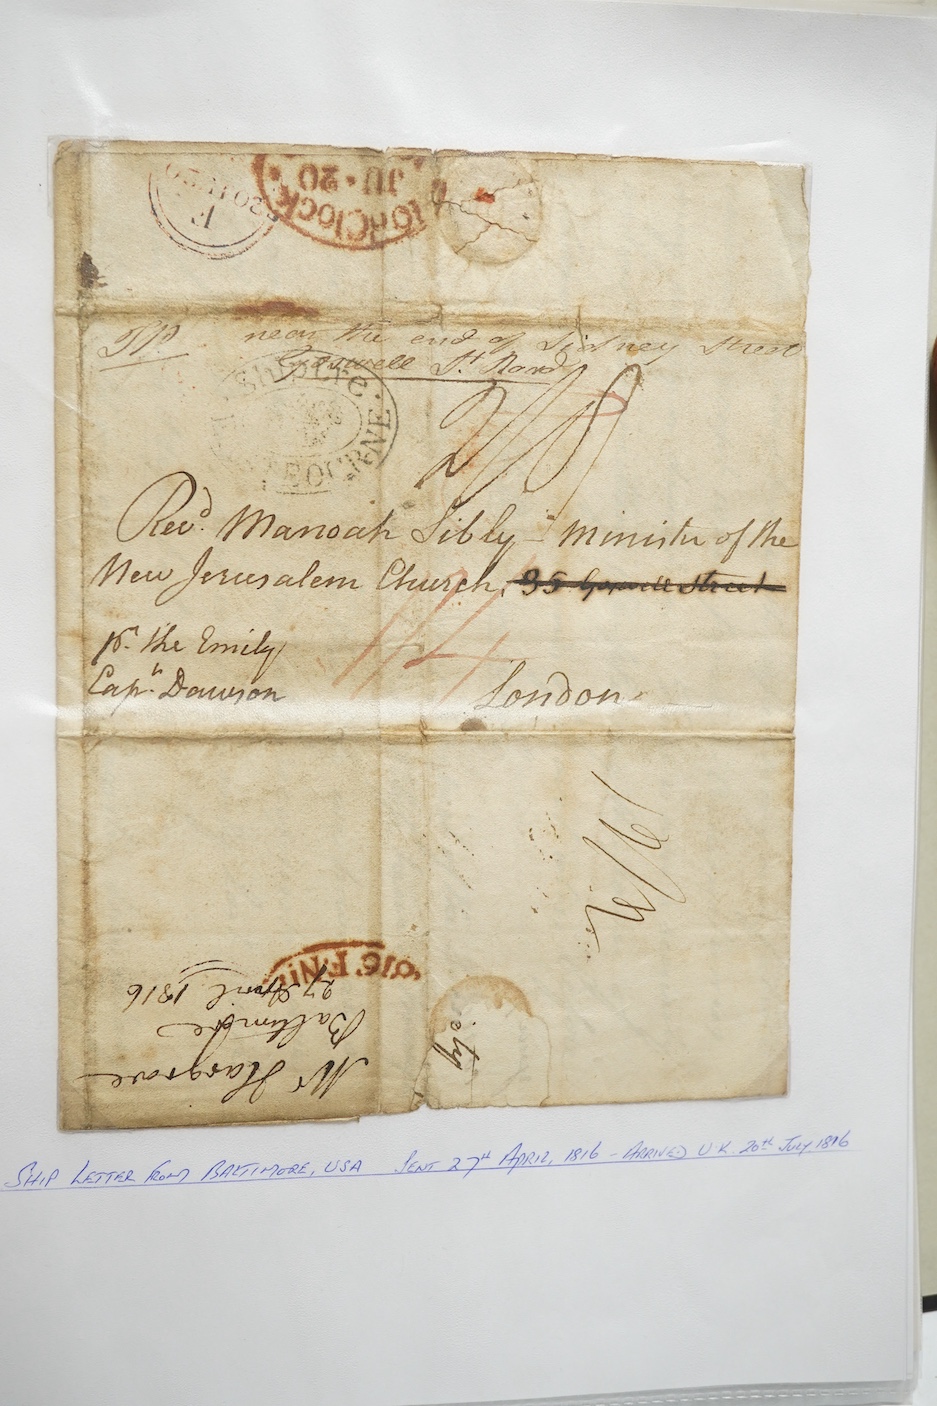 20 JY 20
F
10 o'Clock
JU · 20
near the end of Sidney Street
Goswell St. Road
Ship Le
BOURNE
2/8
Revd. Manoah Sibly - Minister of the
New Jerusalem Church, 35 Goswell Street
1/4
pr. the Emily
Capn. Dawson
London
F.Nn
Mr Hargrove
Baltimore
27 April 1816
SHIP LETTER FROM BALTIMORE, USA SENT 27th APRIL, 1816 - ARRIVED U.K. 20th JULY 1816